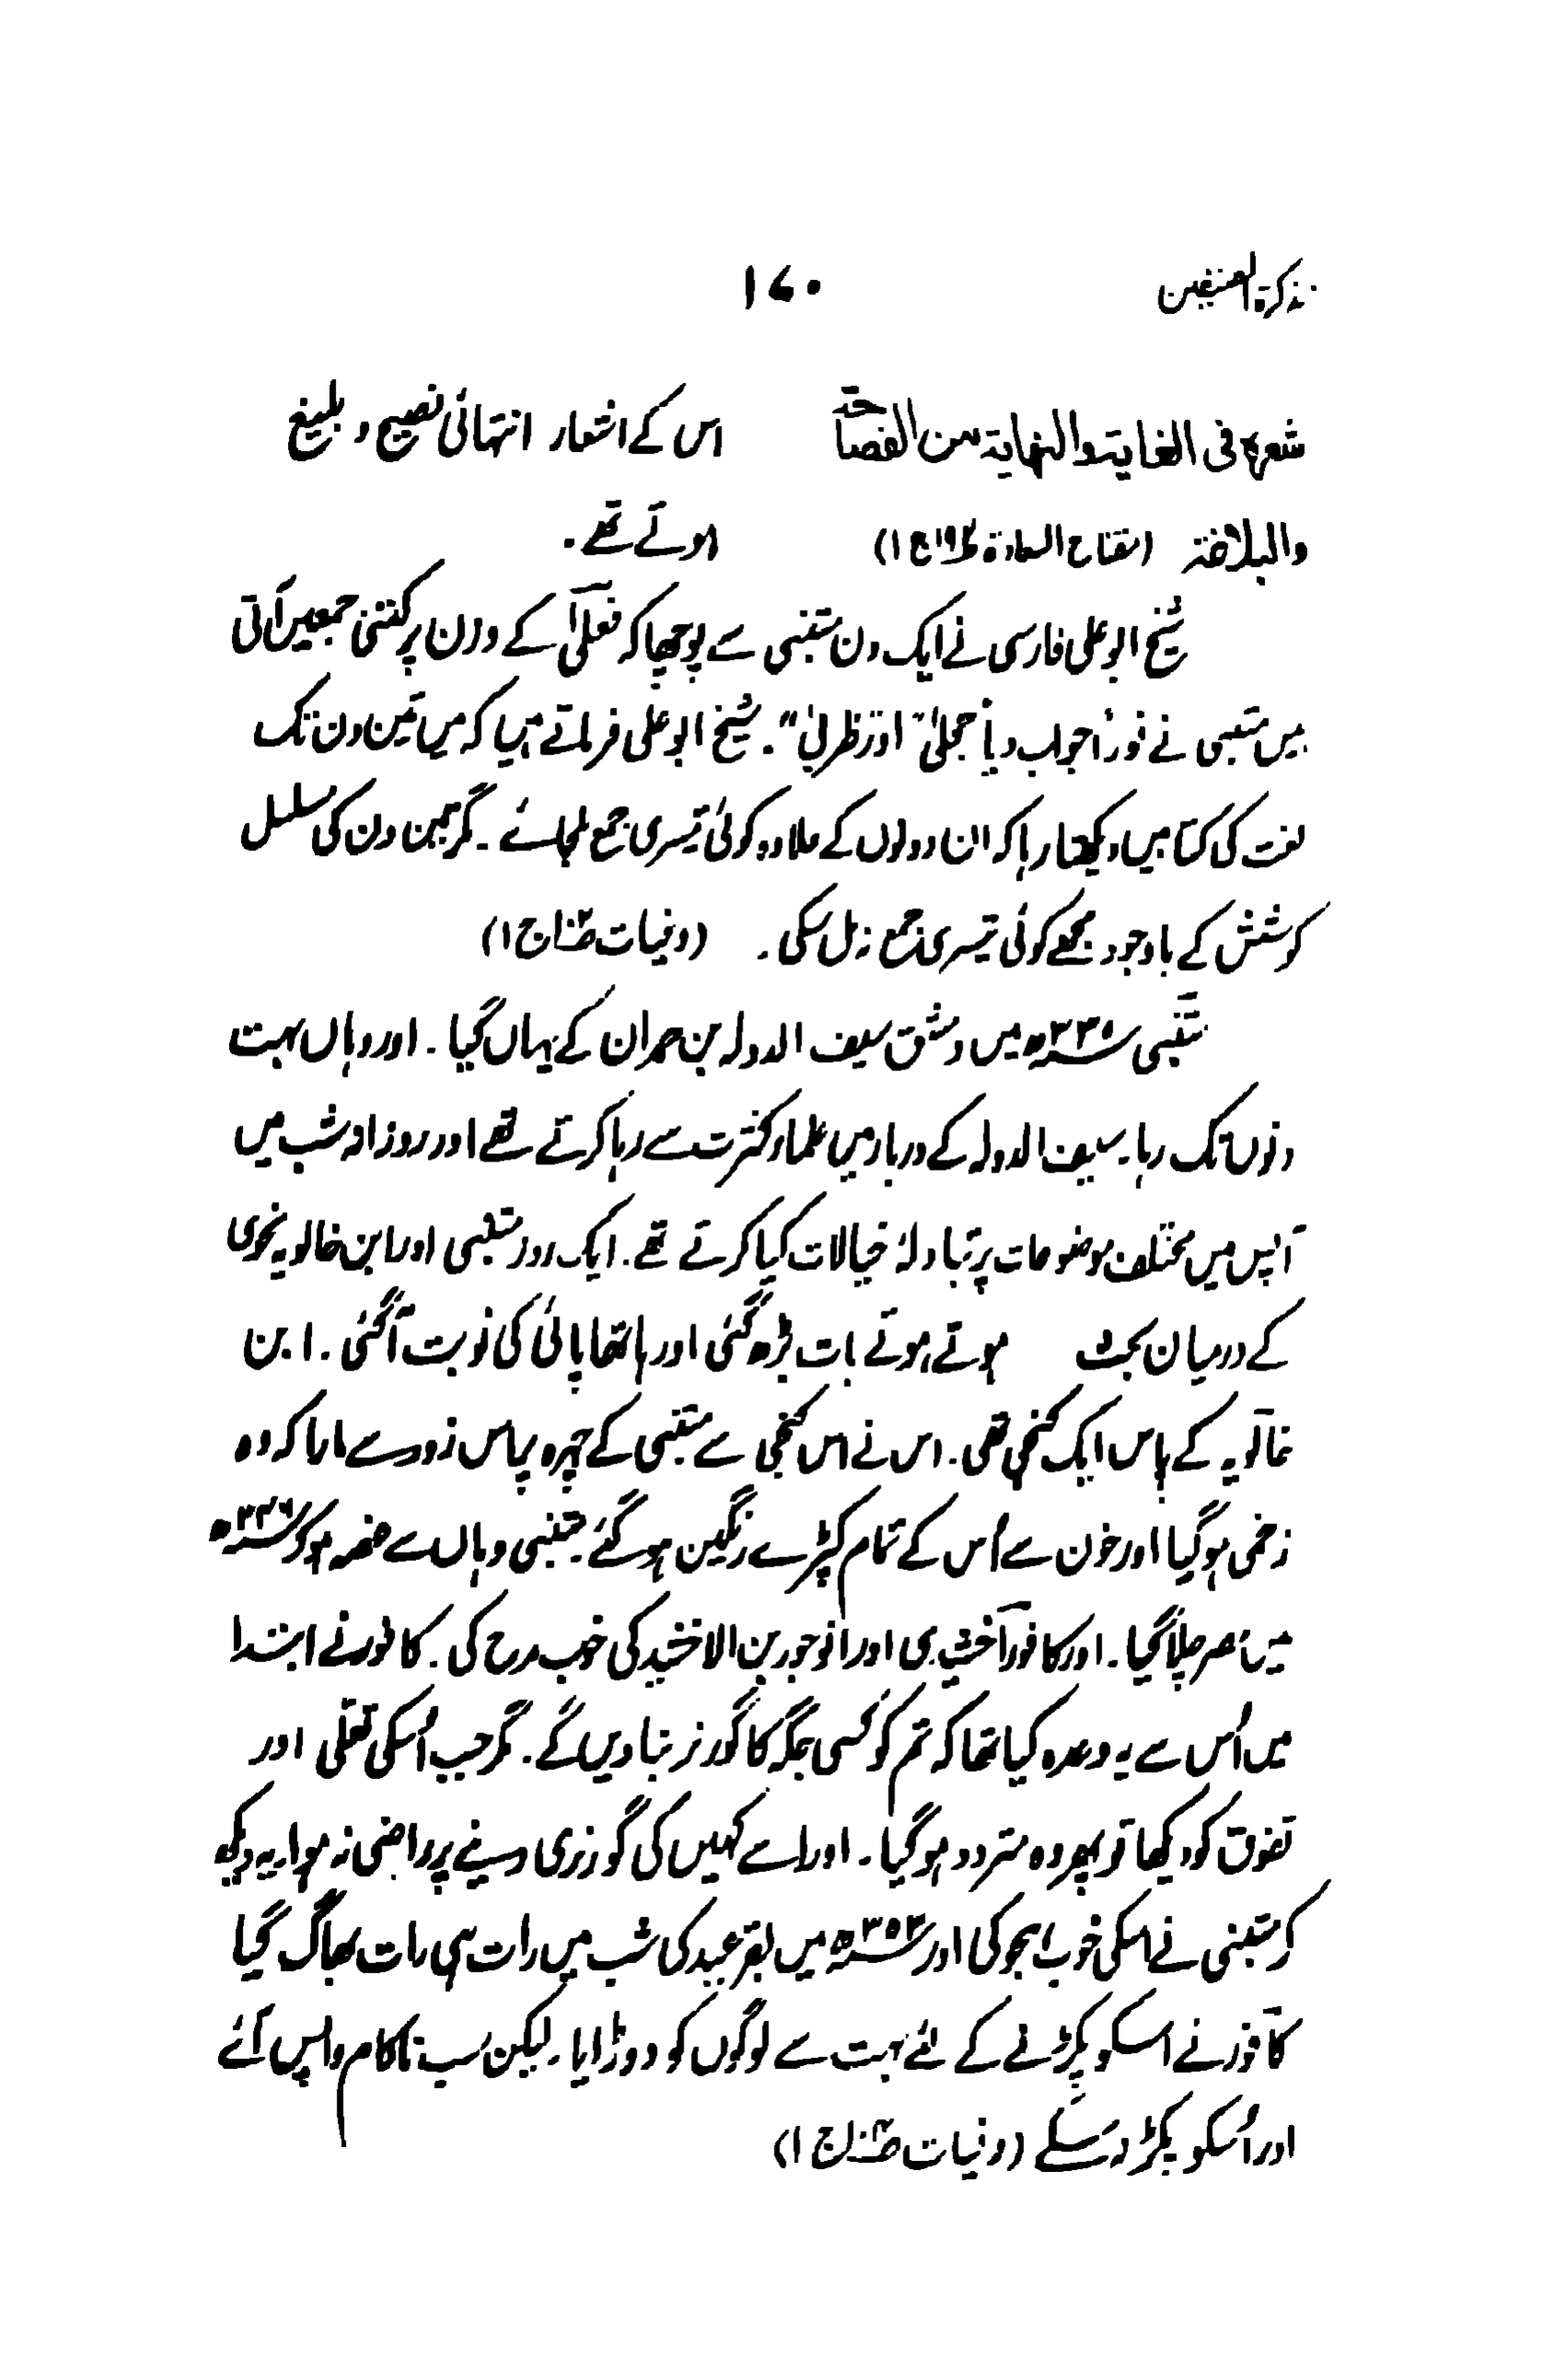 تذکرۃ المصنفین ۱۷۰
شعرہ فی الغایۃ والنہایۃ من الفصاحۃ اس کے اشعار انتہائی فصیح و بلیغ
والبلاغۃ (مفتاح السعادۃ ج ۱) ہوتے تھے۔
شیخ ابو علی فارسی نے ایک دن متنبی سے پوچھا کہ فعلیٰ کے وزن پر کتنی جمعیں آتی
ہیں متنبی نے فوراً جواب دیا "حجلیٰ" اور "ظربیٰ"۔ شیخ ابو علی فرماتے ہیں کہ میں تین دن تک
لغت کی کتابیں دیکھتا رہا کہ ان دونوں کے علاوہ کوئی تیسری جمع ملجائے۔ مگر تین دن کی مسلسل
کوشش کے باوجود مجھے کوئی تیسری جمع نہ مل سکی۔ (وفیات ج ۱)
متنبی میں دمشق سیف الدولہ بن حمدان کے یہاں گیا۔ اور وہاں بہت
دنوں تک رہا۔ سیف الدولہ کے دربار میں علماء کثرت سے رہا کرتے تھے اور روزانہ شب میں
آپس میں مختلف موضوعات پر تبادلۂ خیالات کیا کرتے تھے۔ ایک روز متنبی اور ابن خالویہ نحوی
کے درمیان بحث ہوتے ہوتے بات بڑھ گئی اور ہاتھا پائی کی نوبت آگئی۔ ابن
خالویہ کے پاس ایک کنجی تھی۔ اس نے اس کنجی سے متنبی کے چہرہ پر اس زور سے مارا کہ وہ
زخمی ہوگیا اور خون سے اُس کے تمام کپڑے رنگین ہوگئے۔ متنبی وہاں سے غصہ ہوکر ۳۴۶ھ
میں مصر چلا گیا۔ اور کافور اخشیدی اور انوجور بن الاخشید کی خوب مدح کی۔ کافور نے ابتدا
میں اُس سے یہ وعدہ کیا تھا کہ تم کو کسی جگہ کا گورنر بنا دیں گے۔ مگر جب اُسکی تعلی اور
تفوق کو دیکھا تو پھر وہ متردد ہوگیا۔ اور اسے کہیں کی گورنری دینے پر راضی نہ ہوا۔ یہ دیکھ
کر متنبی نے اسکی خوب ہجو کی اور ۳۵۳ھ میں بقرعید کی شب میں رات ہی رات بھاگ گیا
کافور نے اسکو پکڑنے کے لئے بہت سے لوگوں کو دوڑایا۔ لیکن سب ناکام واپس آئے
اور اُسکو پکڑ نہ سکے (وفیات ج ۱)